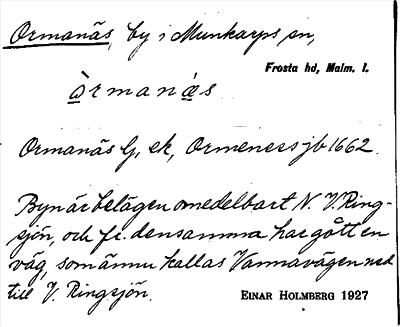 Ormanäs, by i Munkarps sn,
Frosta hd, Malm. l.
òrmanæs
Ormanäs G, ek, Ormeness jb 1662.
Byn är belägen omedelbart N. V. Ring-
sjön, och fr. densamma har gått en
väg, som ännu kallas Vannavägen ned
till V. Ringsjön.
EINAR HOLMBERG 1927